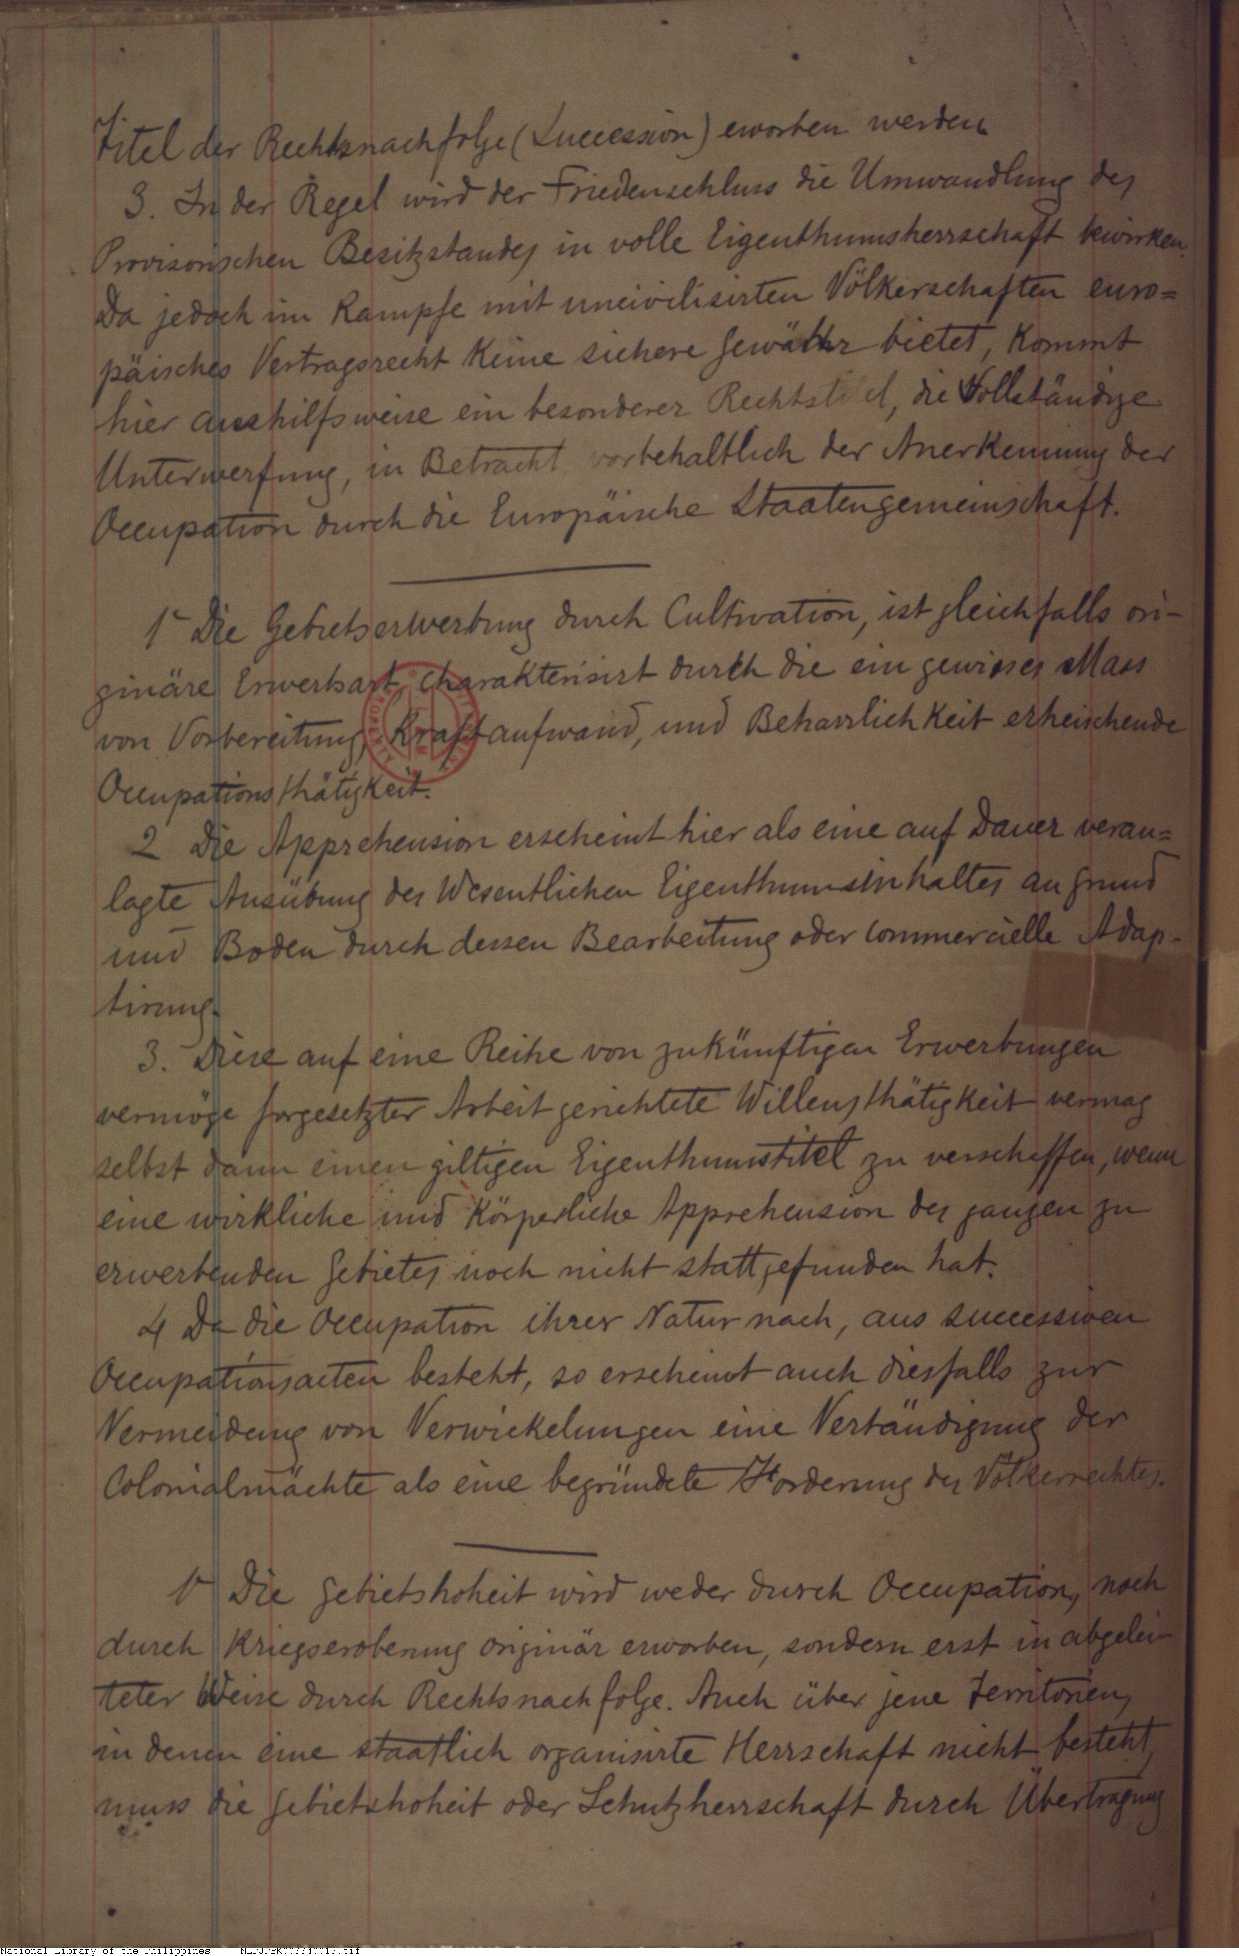 Titel der Rechtsnachfolge (Succession) eworben werden
3. In der Regel wird der Friedenschluss die Umwandlung des
Provisorischen Besitzstandes in volle Eigenthumsherrschaft bewirken.
Da jedoch im Kampfe mit uncivilisirten Völkerschaften euro=
päisches Vertragsrecht Keine sichere Gewähr bietet, Kommt
hier aushilfsweise ein besonderer Rechtstitel, die Vollständige
Unterwerfung, in Betracht vorbehaltlich der Anerkennung der
Occupation durch die Europäische Staatengemeinschaft.
1 Die Gebietserwerbung durch Cultivation, ist gleichfalls ori-
ginäre Erwerbsart charakterisirt durch die ein gewisses Mass
von Vorbereitung, Kraftaufwand, und Beharrlichkeit erheischende
Occupationsthätigkeit.
2 Die Apprehension erscheint hier als eine auf Dauer veran=
lagte Ausübung des Wesentlichen Eigenthumsinhaltes an Grund
und Boden durch dessen Bearbeitung oder commercielle Adap-
tirung.
3. Diese auf eine Reihe von zukünftigen Erwerbungen
vermöge forgesetzter Arbeit gerichtete Willensthätigkeit vermag
selbst dann einen giltigen Eigenthumstitel zu verschaffen, wenn
eine wirkliche und Körperliche Apprehension des ganzen zu
erwerbenden Gebietes noch nicht stattgefunden hat.
4 Da die Occupation ihrer Natur nach, aus successiven
Occupationsacten besteht, so erscheint auch diesfalls zur
Vermeidung von Verwickelungen eine Vertändigung der
Colonialmächte als eine begründete Forderung des Völkerrechtes.
1 Die Gebietshoheit wird weder durch Occupation, noch
durch Kriegseroberung originär erworben, sondern erst in abgelei-
teter Weise durch Rechtsnachfolge. Auch über jene Territorien,
in denen eine staatlich organisirte Herrschaft nicht besteht,
muss die Gebietshoheit oder Schutzherrschaft durch Übertragung
National Library of the Philippines